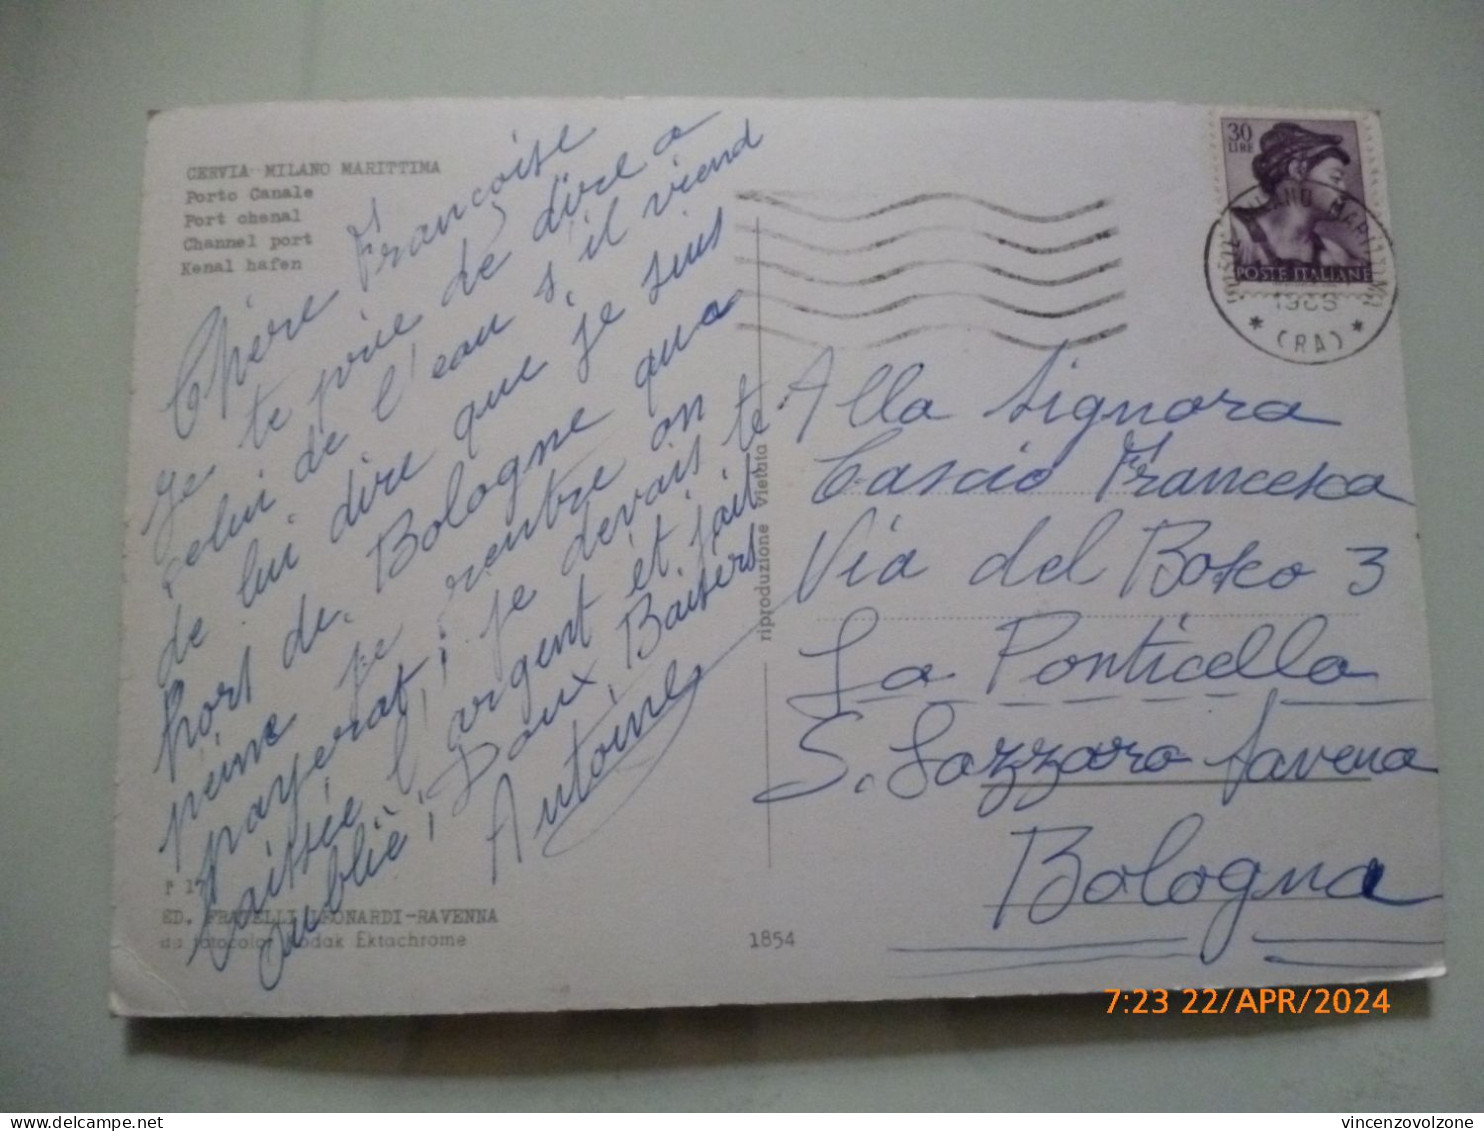 CERVIA-MILANO MARITTIMA
Porto Canale
Port chenal
Channel port
Kenal hafen
Chère Françoise
Je te prie de dire a
celui de l'eau s'il viend
de lui dire que je suis
hors de Bologne qua
peine je rentre on
payerat, je devais te
laissée l'argent et fait
oublié, Doux Baisers
Antoine
P 17
ED. FRATELLI LEONARDI-RAVENNA
da fotocolor Kodak Ektachrome
1854
riproduzione vietata
30
LIRE
POSTE ITALIANE
MILANO MARITTIMA
(RA)
Alla Signora
Cascio Francesca
Via del Bosco 3
La Ponticella
S. Lazzaro Savena
Bologna
7:23 22/APR/2024
vincenzovolzone